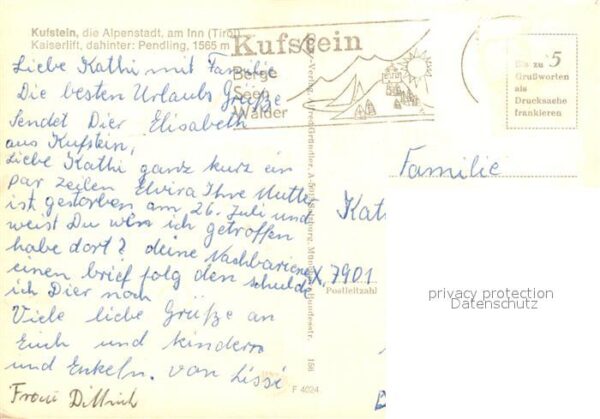 Kufstein, die Alpenstadt, am Inn (Tirol)
Kaiserlift, dahinter: Pendling, 1565 m
Kufstein
Berge
Seen
Wälder
Bis zu 5
Grußworten
als
Drucksache
frankieren
Liebe Kathi mit Familie
Die besten Urlaubs Grüße
Sendet Dier Elisabeth
aus Kufstein,
Liebe Kathi ganz kurz ein
par Zeilen Elvira Ihre Mutte
ist gestorben am 26. Juli und
weist Du wen ich getroffen
habe dort? deine Nachbariene
einen brief folg den schulde
ich Dier noch
Viele liebe Grüße an
Euch und kindern
und Enkeln. von Lissi
Frau Dittrich
Familie
Kat
X, 7901
Postleitzahl
156
F 4024
privacy protection
Datenschutz